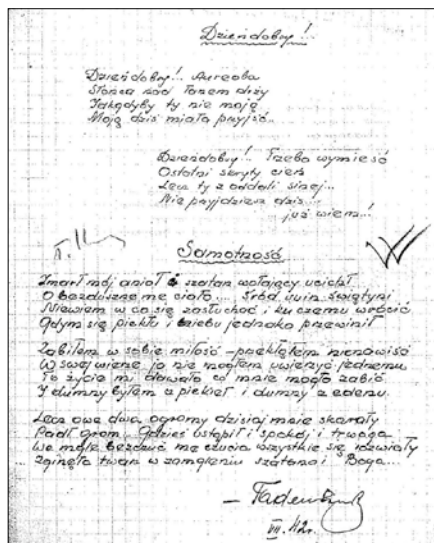 Dzieńdobry!..
Dzieńdobry!.. Aureola
Słońca nad łanem drży
Jakgdyby ty nie moją
Moją dziś miała przyjść..
Dzieńdobry!.. Trzeba wymieść
Ostatni skryty cień
Lecz ty z oddali sinej...
Nie przyjdziesz dziś...
już wiem!..
Samotność
Zmarł mój anioł i szatan wołający ucichł
O bezduszne me ciało.... Śród ruin świątyni
Niewiem w co się zasłuchać i ku czemu wrócić
Gdym się piekłu i niebu jednako przewinił
Zabiłem w sobie miłość – przekląłem nienawiść
W swej winie ja nie mogłem uwierzyć jednemu
To życie mi dawało co mnie mogło zabić
I dumny byłem z piekieł i dumny z edenu.
Lecz owe dwa ogromy dzisiaj mnie skarały
Padł grom – Gdzieś ustąpił i spokój i trwoga
We mgle bezczuć me czucia wszystkie się
Zginęła twarz w zamgleniu szatana i Boga...
– Tadeusz
VII. 42r.